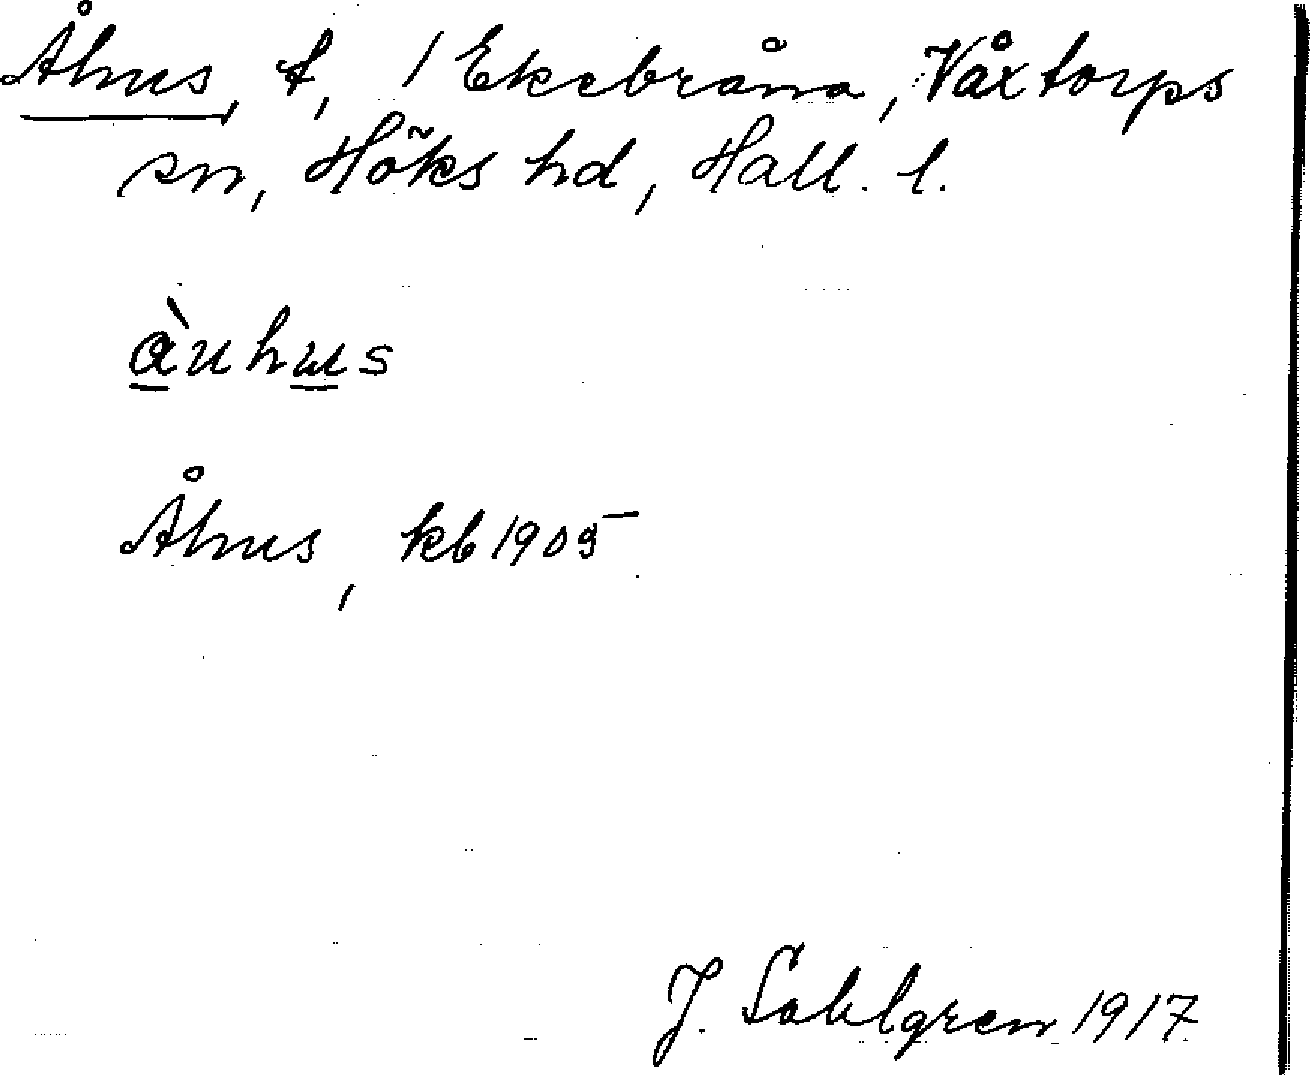 Åhus, t, / Ekebråna, Våxtorps
sn, Höks hd, Hall. l.
àuhus
Åhus, kb 1905
J. Sahlgren 1917